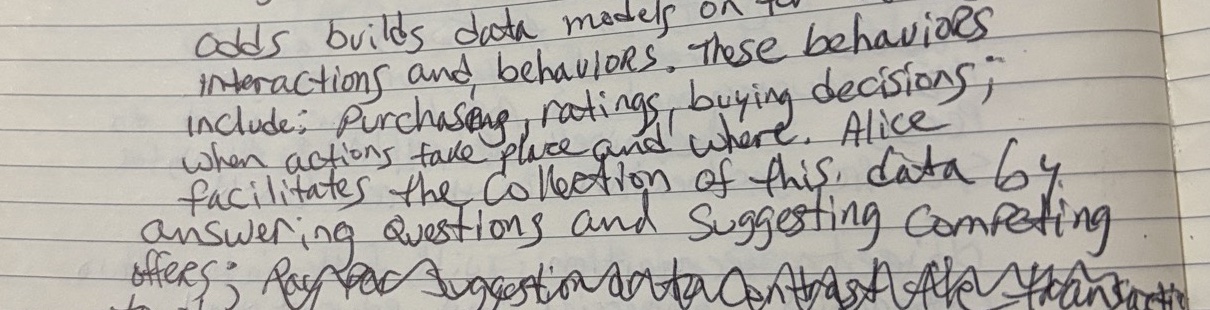 adds builds data models on
interactions and behaviors. These behaviors
include: Purchasing, ratings, buying decisions;
when actions take place and where. Alice
facilitates the Collection of this data by
answering Questions and Suggesting Competing
offers; Pay Per Suggestion data Contrast